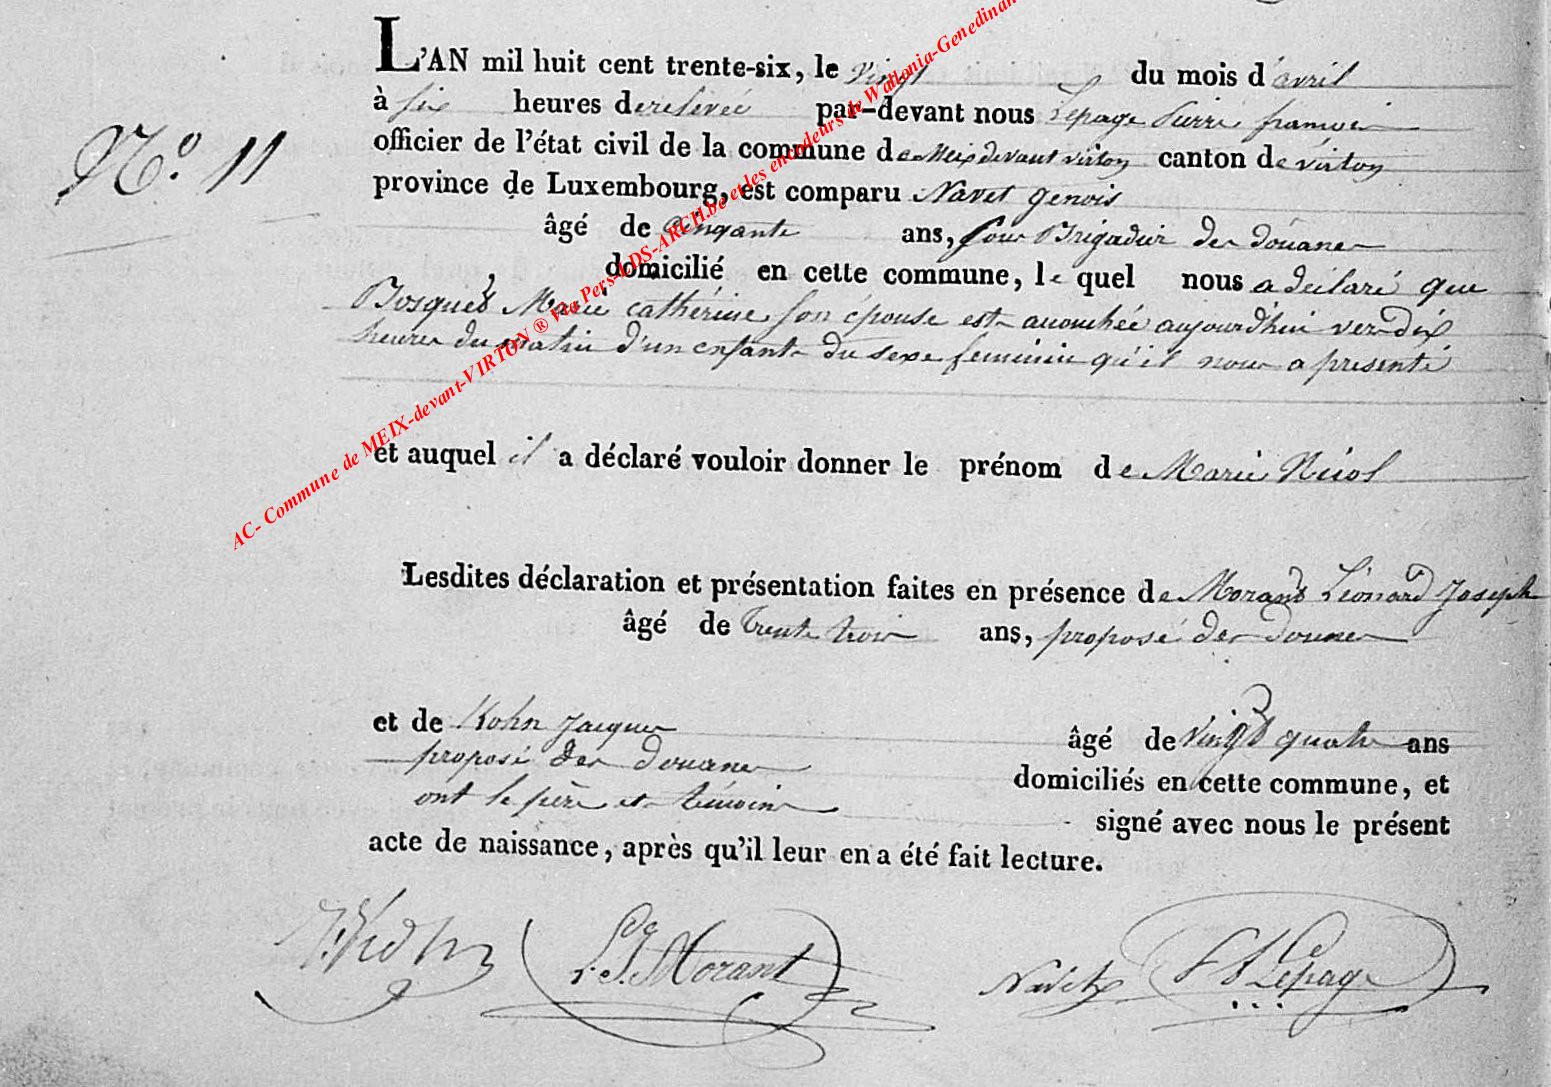 L'AN mil huit cent trente-six, le vingt du mois d'avril
à six heures de relevée par-devant nous Lepage Pierre françois
N.° 11
officier de l'état civil de la commune de Meix devant virton canton de virton
province de Luxembourg, est comparu Navet genois
âgé de cinqante ans, sous Brigadier des douanes
domicilié en cette commune, le quel nous a déclaré que
Bosquet Marie cathérine son épouse est accouchée aujourd'hui vers dix
heures du matin d'un enfant du sexe feminin qu'il nous a presenté
et auquel il a déclaré vouloir donner le prénom de Marie Nicol
Lesdites déclaration et présentation faites en présence de Morand Léonard Joseph
âgé de trente trois ans, proposé des douanes
et de Kohn Jacques âgé de vingt quatre ans
proposé des douanes domiciliés en cette commune, et
ont le père et témoins signé avec nous le présent
acte de naissance, après qu'il leur en a été fait lecture.
L. J. Morant Navet P f Lepage
AC- Commune de MEIX-devant-VIRTON ® Via Pers-LDS-ARCH.be et les encodeurs de Wallonia-Genedinan